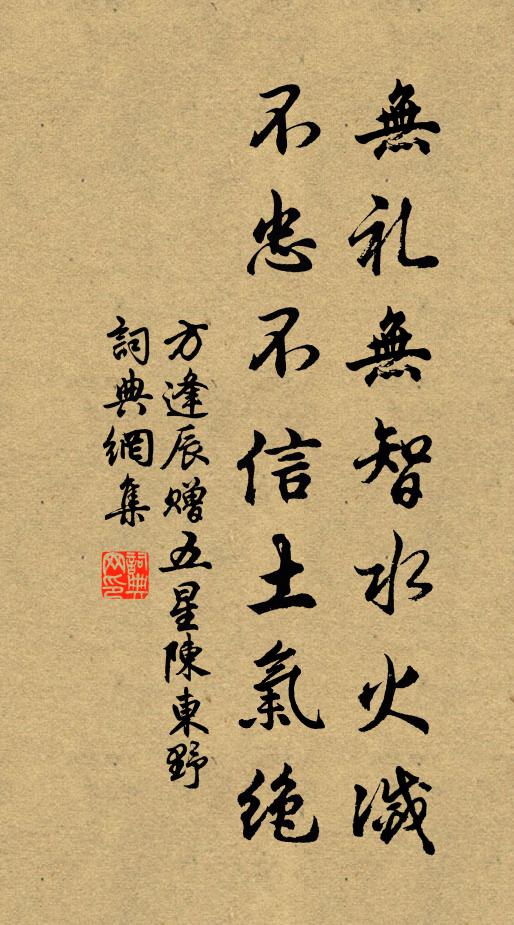 無礼無智水火滅
不忠不信土氣絶
方逢辰贈五星陳東野
詞典網集
詞典網印